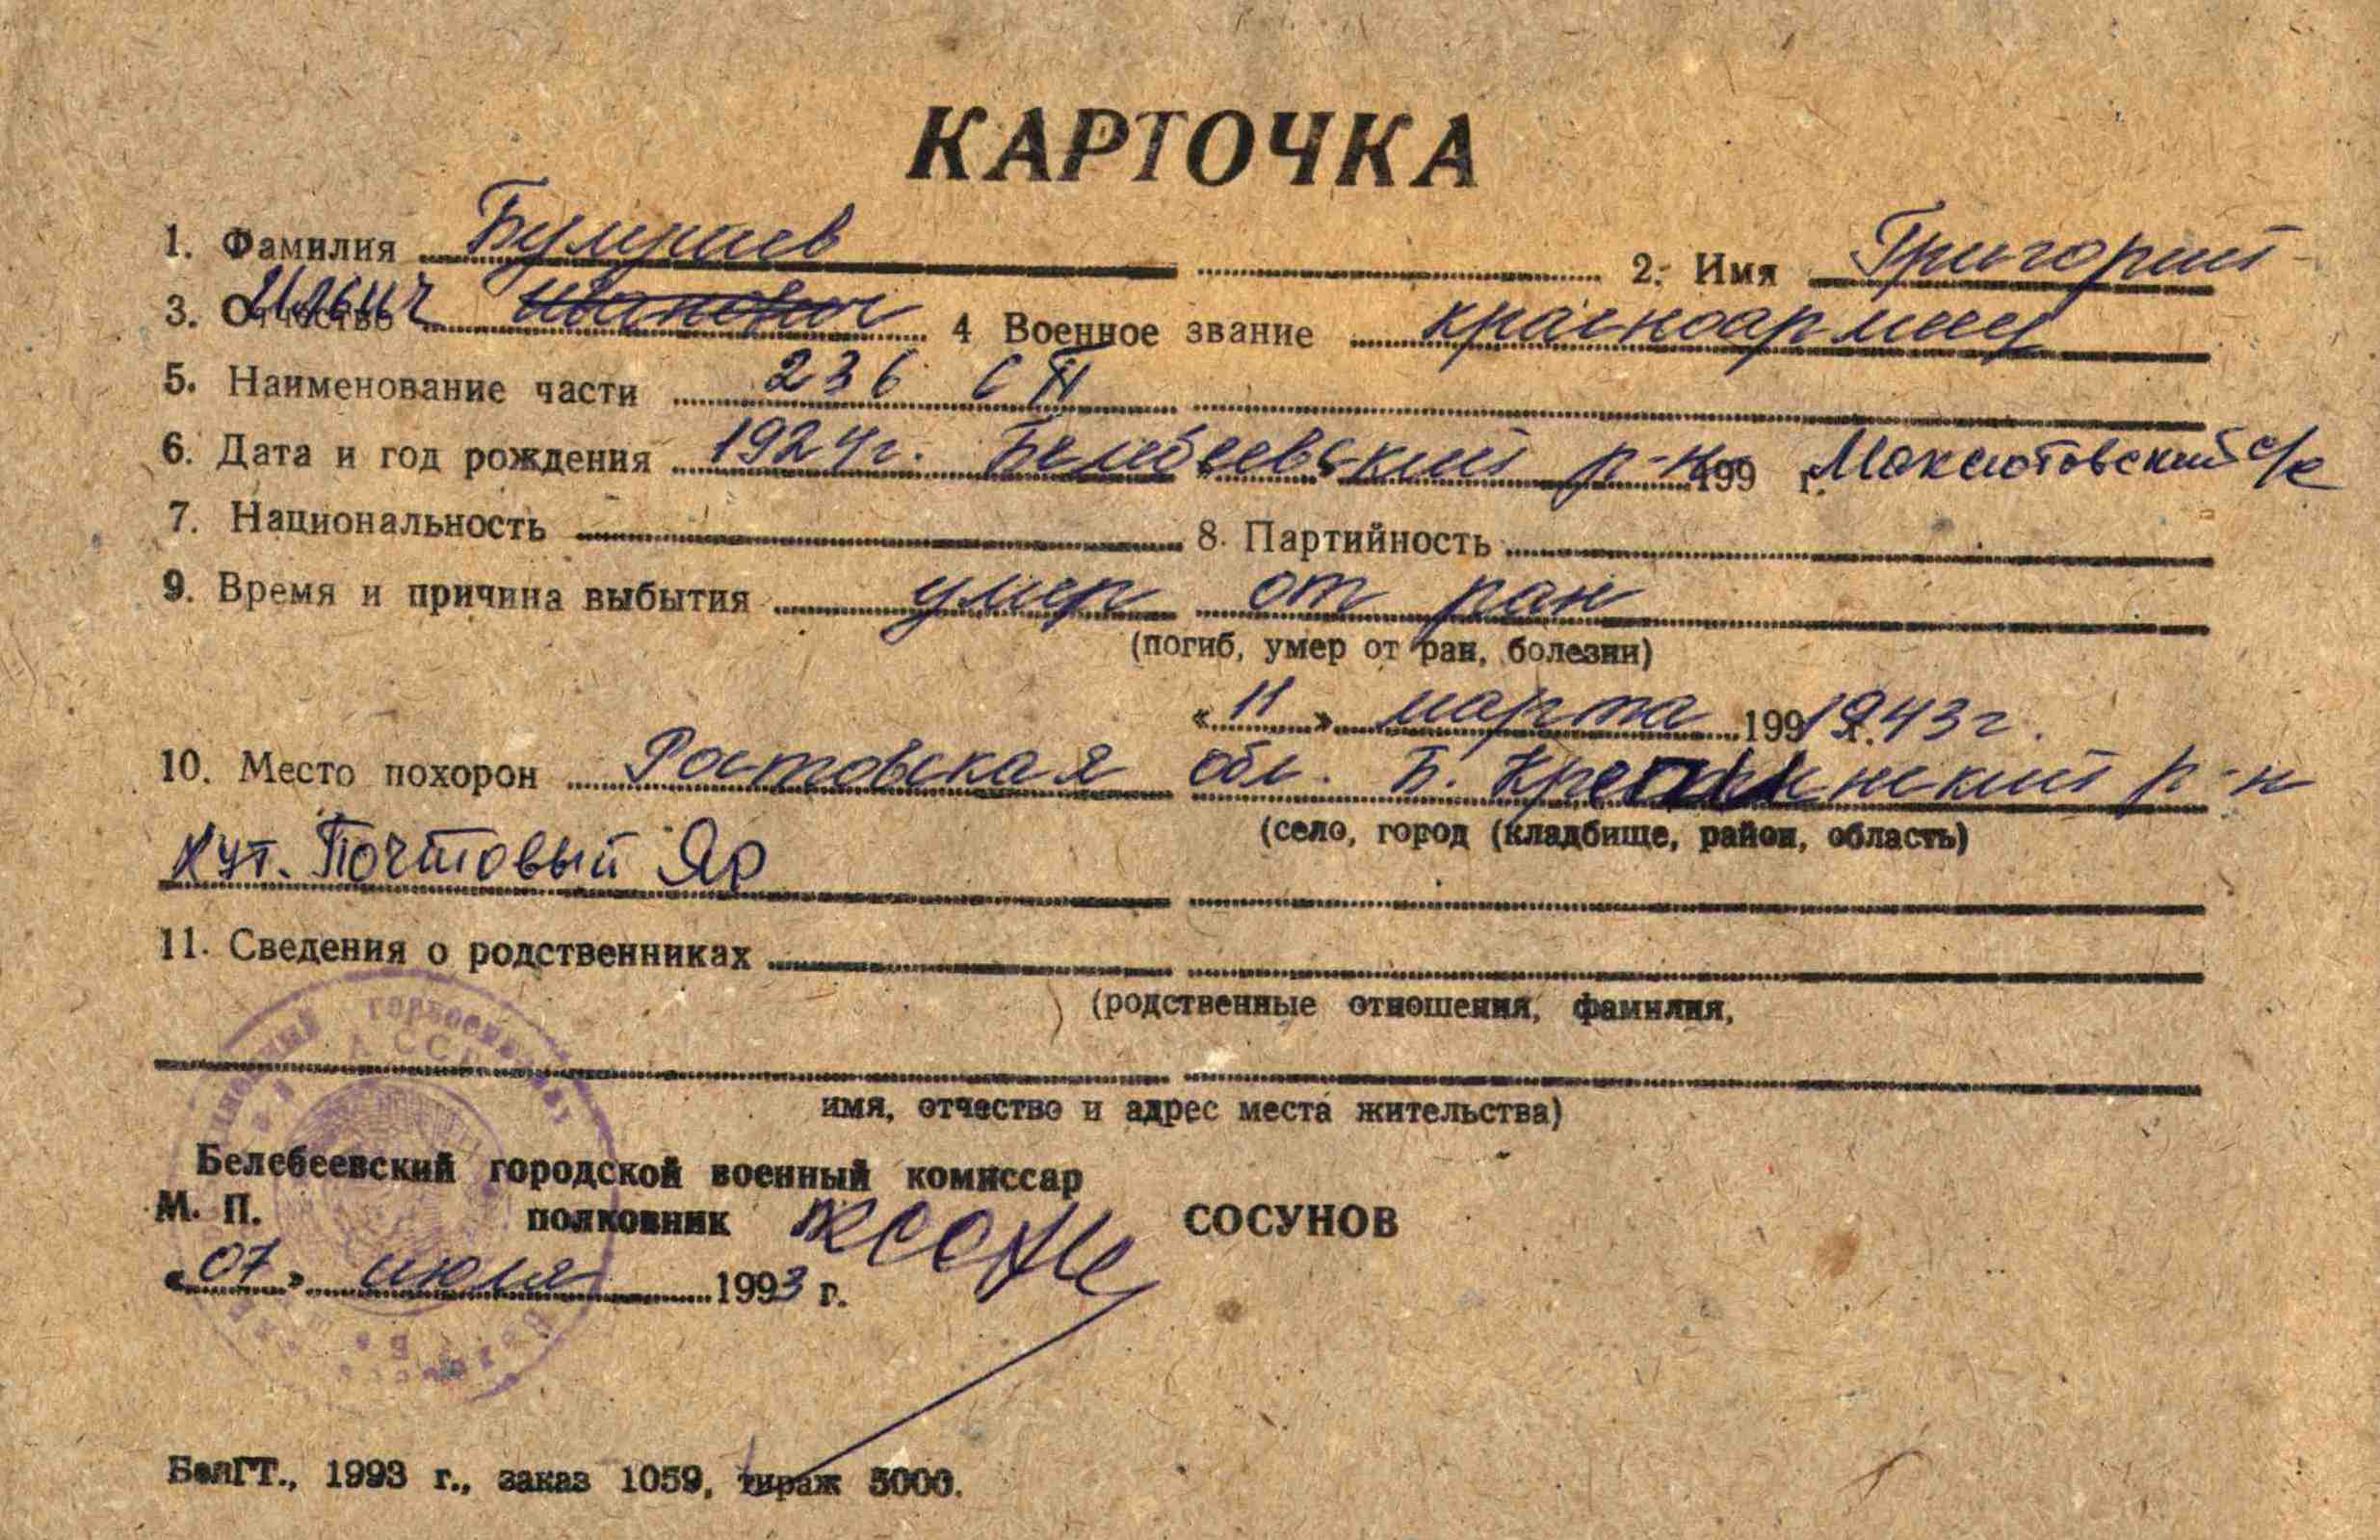 КАРТОЧКА
1. Фамилия Булучиев 2. Имя Григорий
3. Отчество Ильич Иванович 4 Военное звание красноармеец
5. Наименование части 236 СП
6. Дата и год рождения 1924г. Белебеевский р-н 199 г. Максютовский с/с
7. Национальность 8. Партийность
9. Время и причина выбытия умер от ран
(погиб, умер от ран, болезни)
«11» марта 199 1943г.
10. Место похорон Ростовская обл. Б. Крепинский р-н
(село, город (кладбище, район, область)
хут. Почтовый Яр
11. Сведения о родственниках
(родственные отношения, фамилия,
имя, отчество и адрес места жительства)
Белебеевский городской военный комиссар
М. П. полковник СОСУНОВ
«07» июля 1993 г.
БелГТ., 1993 г., заказ 1059, тираж 5000.